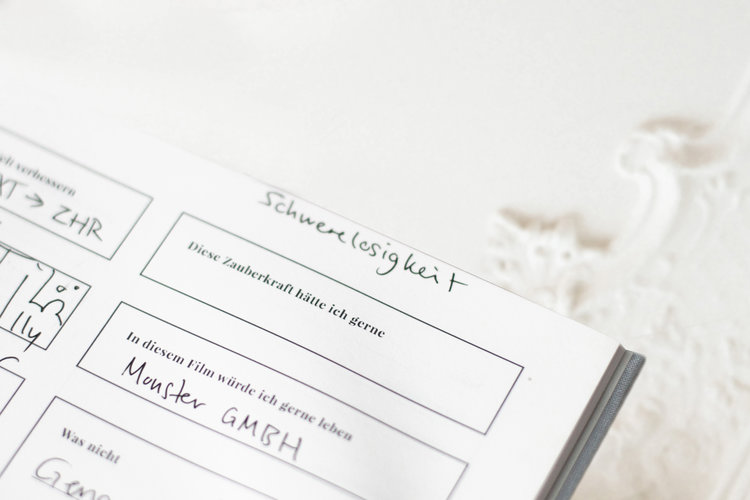 verbessern
→ ZHR
lly
Schwerelosigkeit
Diese Zauberkraft hätte ich gerne
In diesem Film würde ich gerne leben
Monster GMBH
Was nicht